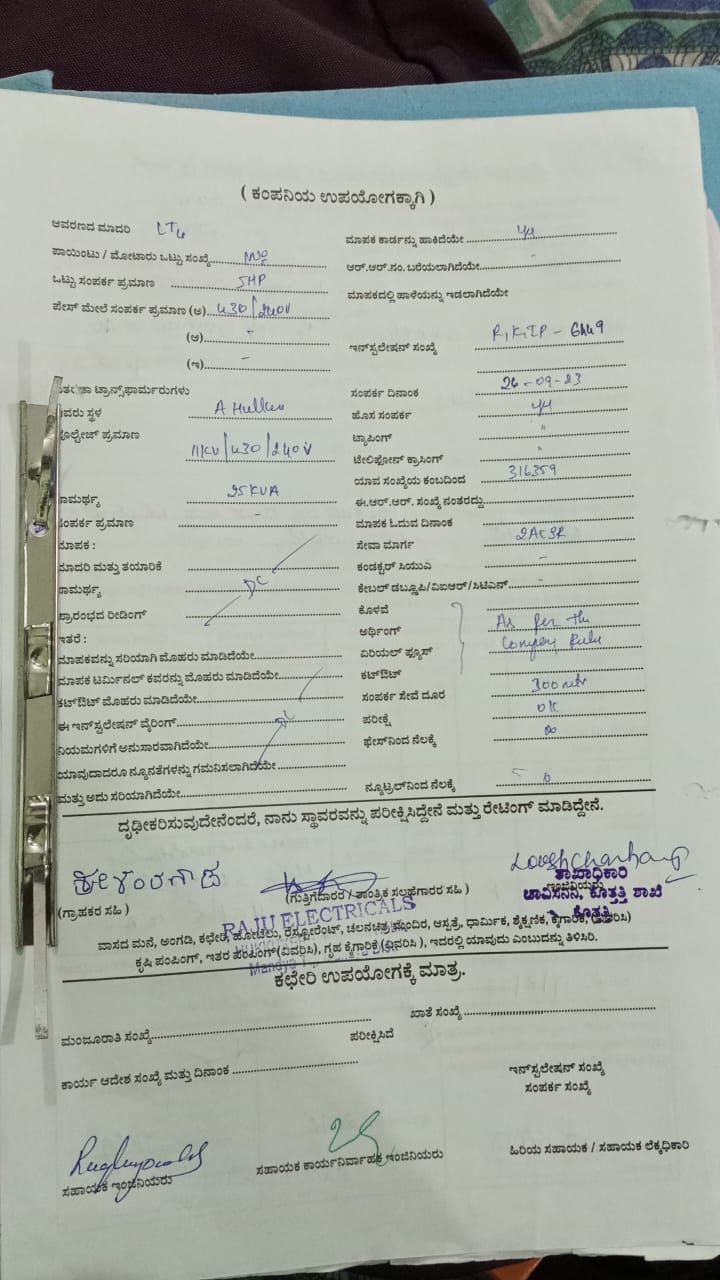 ( ಕಂಪನಿಯ ಉಪಯೋಗಕ್ಕಾಗಿ )
ಆವರಣದ ಮಾದರಿ LT4
ಪಾಯಿಂಟು / ಮೋಟಾರು ಒಟ್ಟು ಸಂಖ್ಯೆ
ಒಟ್ಟು ಸಂಪರ್ಕ ಪ್ರಮಾಣ 5HP
ಪೇಸ್ ಮೇಲೆ ಸಂಪರ್ಕ ಪ್ರಮಾಣ (ಅ) 430/240V
(ಆ) -
(ಇ) -
ಟ್ರಾನ್ಸ್‌ಫಾರ್ಮರುಗಳು
ಸ್ಥಳ A Hulken
ಪ್ರಮಾಣ 11KV/430/240V
25KVA
ಸಂಪರ್ಕ ಪ್ರಮಾಣ -
ಮಾಪಕ :
ಮಾದರಿ ಮತ್ತು ತಯಾರಿಕೆ
ಸಾಮರ್ಥ್ಯ DC
ಪ್ರಾರಂಭದ ರೀಡಿಂಗ್
ಇತರೆ :
ಮಾಪಕವನ್ನು ಸರಿಯಾಗಿ ಮೊಹರು ಮಾಡಿದೆಯೇ
ಮಾಪಕ ಟರ್ಮಿನಲ್ ಕವರನ್ನು ಮೊಹರು ಮಾಡಿದೆಯೇ
ಕಟ್‌ಔಟ್ ಮೊಹರು ಮಾಡಿದೆಯೇ
ಈ ಇನ್‌ಸ್ಟಲೇಷನ್ ವೈರಿಂಗ್
ನಿಯಮಗಳಿಗೆ ಅನುಸಾರವಾಗಿದೆಯೇ
ಯಾವುದಾದರೂ ನ್ಯೂನತೆಗಳನ್ನು ಗಮನಿಸಲಾಗಿದೆಯೇ
ಮತ್ತು ಅದು ಸರಿಯಾಗಿದೆಯೇ
ಮಾಪಕ ಕಾರ್ಡನ್ನು ಹಾಕಿದೆಯೇ
ಆರ್.ಆರ್.ನಂ. ಬರೆಯಲಾಗಿದೆಯೇ -
ಮಾಪಕದಲ್ಲಿ ಹಾಳೆಯನ್ನು ಇಡಲಾಗಿದೆಯೇ
ಇನ್‌ಸ್ಟಲೇಷನ್ ಸಂಖ್ಯೆ R,K,IP - 6449
ಸಂಪರ್ಕ ದಿನಾಂಕ 26-09-23
ಹೊಸ ಸಂಪರ್ಕ
ಟ್ಯಾಪಿಂಗ್ "
ಟೆಲಿಫೋನ್ ಕ್ರಾಸಿಂಗ್ "
ಯಾವ ಸಂಖ್ಯೆಯ ಕಂಬದಿಂದ 316359
ಈ.ಆರ್.ಆರ್. ಸಂಖ್ಯೆ ನಂತರದ್ದು
ಮಾಪಕ ಓದುವ ದಿನಾಂಕ
ಸೇವಾ ಮಾರ್ಗ 2ACSR
ಕಂಡಕ್ಟರ್ ಸಿಯುಎ -
ಕೇಬಲ್ ಡಬ್ಲ್ಯೂಪಿ/ವಿಐಆರ್/ಸಿಟಿಎನ್ -
ಕೊಳವೆ
ಅರ್ಥಿಂಗ್ As per the
ಏರಿಯಲ್ ಫ್ಯೂಸ್ Company Rule
ಕಟ್‌ಔಟ್
ಸಂಪರ್ಕ ಸೇವೆ ದೂರ 300 mtr
ಪರೀಕ್ಷೆ OK
ಫೇಸ್‌ನಿಂದ ನೆಲಕ್ಕೆ ∞
ನ್ಯೂಟ್ರಲ್‌ನಿಂದ ನೆಲಕ್ಕೆ 0
ದೃಢೀಕರಿಸುವುದೇನೆಂದರೆ, ನಾನು ಸ್ಥಾವರವನ್ನು ಪರೀಕ್ಷಿಸಿದ್ದೇನೆ ಮತ್ತು ರೇಟಿಂಗ್ ಮಾಡಿದ್ದೇನೆ.
(ಗ್ರಾಹಕರ ಸಹಿ )
(ಗುತ್ತಿಗೆದಾರರ / ತಾಂತ್ರಿಕ ಸಲಹೆಗಾರರ ಸಹಿ )
ಇಂಜಿನಿಯರು
ಶಾಖಾಧಿಕಾರಿ
ಚಾವಿಸನಿನಿ, ಕೊತ್ತತ್ತಿ ಶಾಖೆ
ಕೊತ್ತತ್ತಿ
RAJU ELECTRICALS
Mandya
ವಾಸದ ಮನೆ, ಅಂಗಡಿ, ಕಛೇರಿ, ಹೋಟೆಲು, ರೆಸ್ಟೋರೆಂಟ್, ಚಲನಚಿತ್ರ ಮಂದಿರ, ಆಸ್ಪತ್ರೆ, ಧಾರ್ಮಿಕ, ಶೈಕ್ಷಣಿಕ, ಕೈಗಾರಿಕೆ, (ವಿವರಿಸಿ)
ಕೃಷಿ ಪಂಪಿಂಗ್, ಇತರ ಪಂಪಿಂಗ್(ವಿವರಿಸಿ), ಗೃಹ ಕೈಗಾರಿಕೆ (ವಿವರಿಸಿ ), ಇದರಲ್ಲಿ ಯಾವುದು ಎಂಬುದನ್ನು ತಿಳಿಸಿರಿ.
ಕಛೇರಿ ಉಪಯೋಗಕ್ಕೆ ಮಾತ್ರ.
ಮಂಜೂರಾತಿ ಸಂಖ್ಯೆ
ಖಾತೆ ಸಂಖ್ಯೆ
ಪರೀಕ್ಷಿಸಿದೆ
ಕಾರ್ಯ ಆದೇಶ ಸಂಖ್ಯೆ ಮತ್ತು ದಿನಾಂಕ
ಇನ್‌ಸ್ಟಲೇಷನ್ ಸಂಖ್ಯೆ
ಸಂಪರ್ಕ ಸಂಖ್ಯೆ
ಸಹಾಯಕ ಇಂಜಿನಿಯರು
ಸಹಾಯಕ ಕಾರ್ಯನಿರ್ವಾಹಕ ಇಂಜಿನಿಯರು
ಹಿರಿಯ ಸಹಾಯಕ / ಸಹಾಯಕ ಲೆಕ್ಕಧಿಕಾರಿ